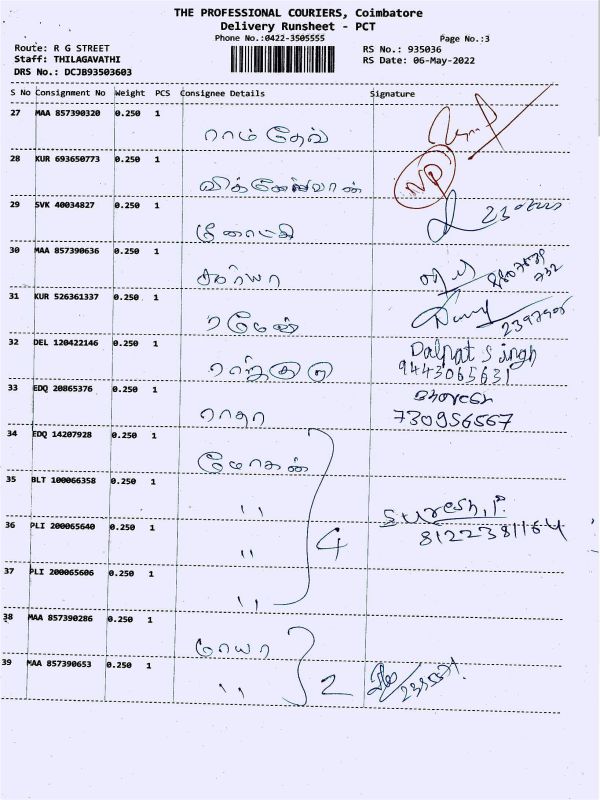 THE PROFESSIONAL COURIERS, Coimbatore
Delivery Runsheet - PCT
Phone No.:0422-3505555
Page No.:3
Route: R G STREET
RS No.: 935036
Staff: THILAGAVATHI
RS Date: 06-May-2022
DRS No.: DCJB93503603
S No Consignment No Weight PCS Consignee Details Signature
27 MAA 857390320 0.250 1
ராம் தேவ்
28 KUR 693650773 0.250 1
NP
29 SVK 40034827 0.250 1
30 MAA 857390636 0.250 1
31 KUR 526361337 0.250 1
ரமேஷ்
32 DEL 120422146 0.250 1
Dalpat Singh
9443065631
33 EDQ 20865376 0.250 1
ராதா
730956567
34 EDQ 14207928 0.250 1
மோகன்
35 BLT 100066358 0.250 1
〃
Suresh.P.
8122381164
36 PLI 200065640 0.250 1
〃
4
37 PLI 200065606 0.250 1
〃
38 MAA 857390286 0.250 1
மாயா
39 MAA 857390653 0.250 1
〃 2